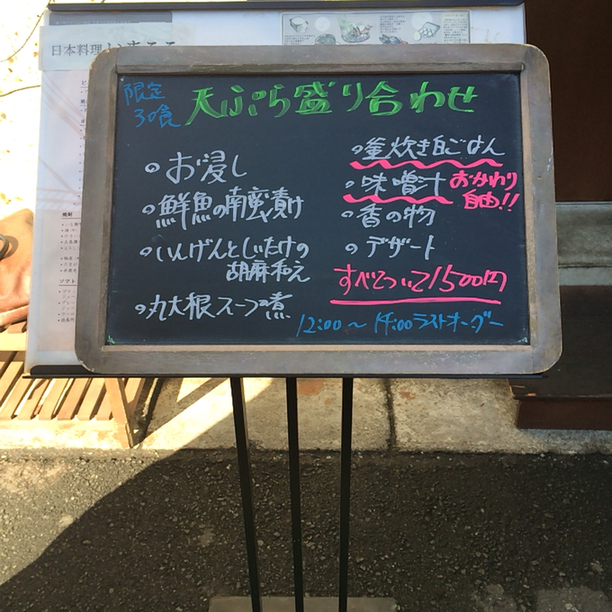 日本料理
限定
30食
天ぷら盛り合わせ
○お浸し
○鮮魚の南蛮漬け
○いんげんとしいたけの
胡麻和え
○丸大根スープ煮
○釜炊き白ごはん
○味噌汁 おかわり
自由!!
○香の物
○デザート
すべてついて1500円
12:00〜14:00ラストオーダー